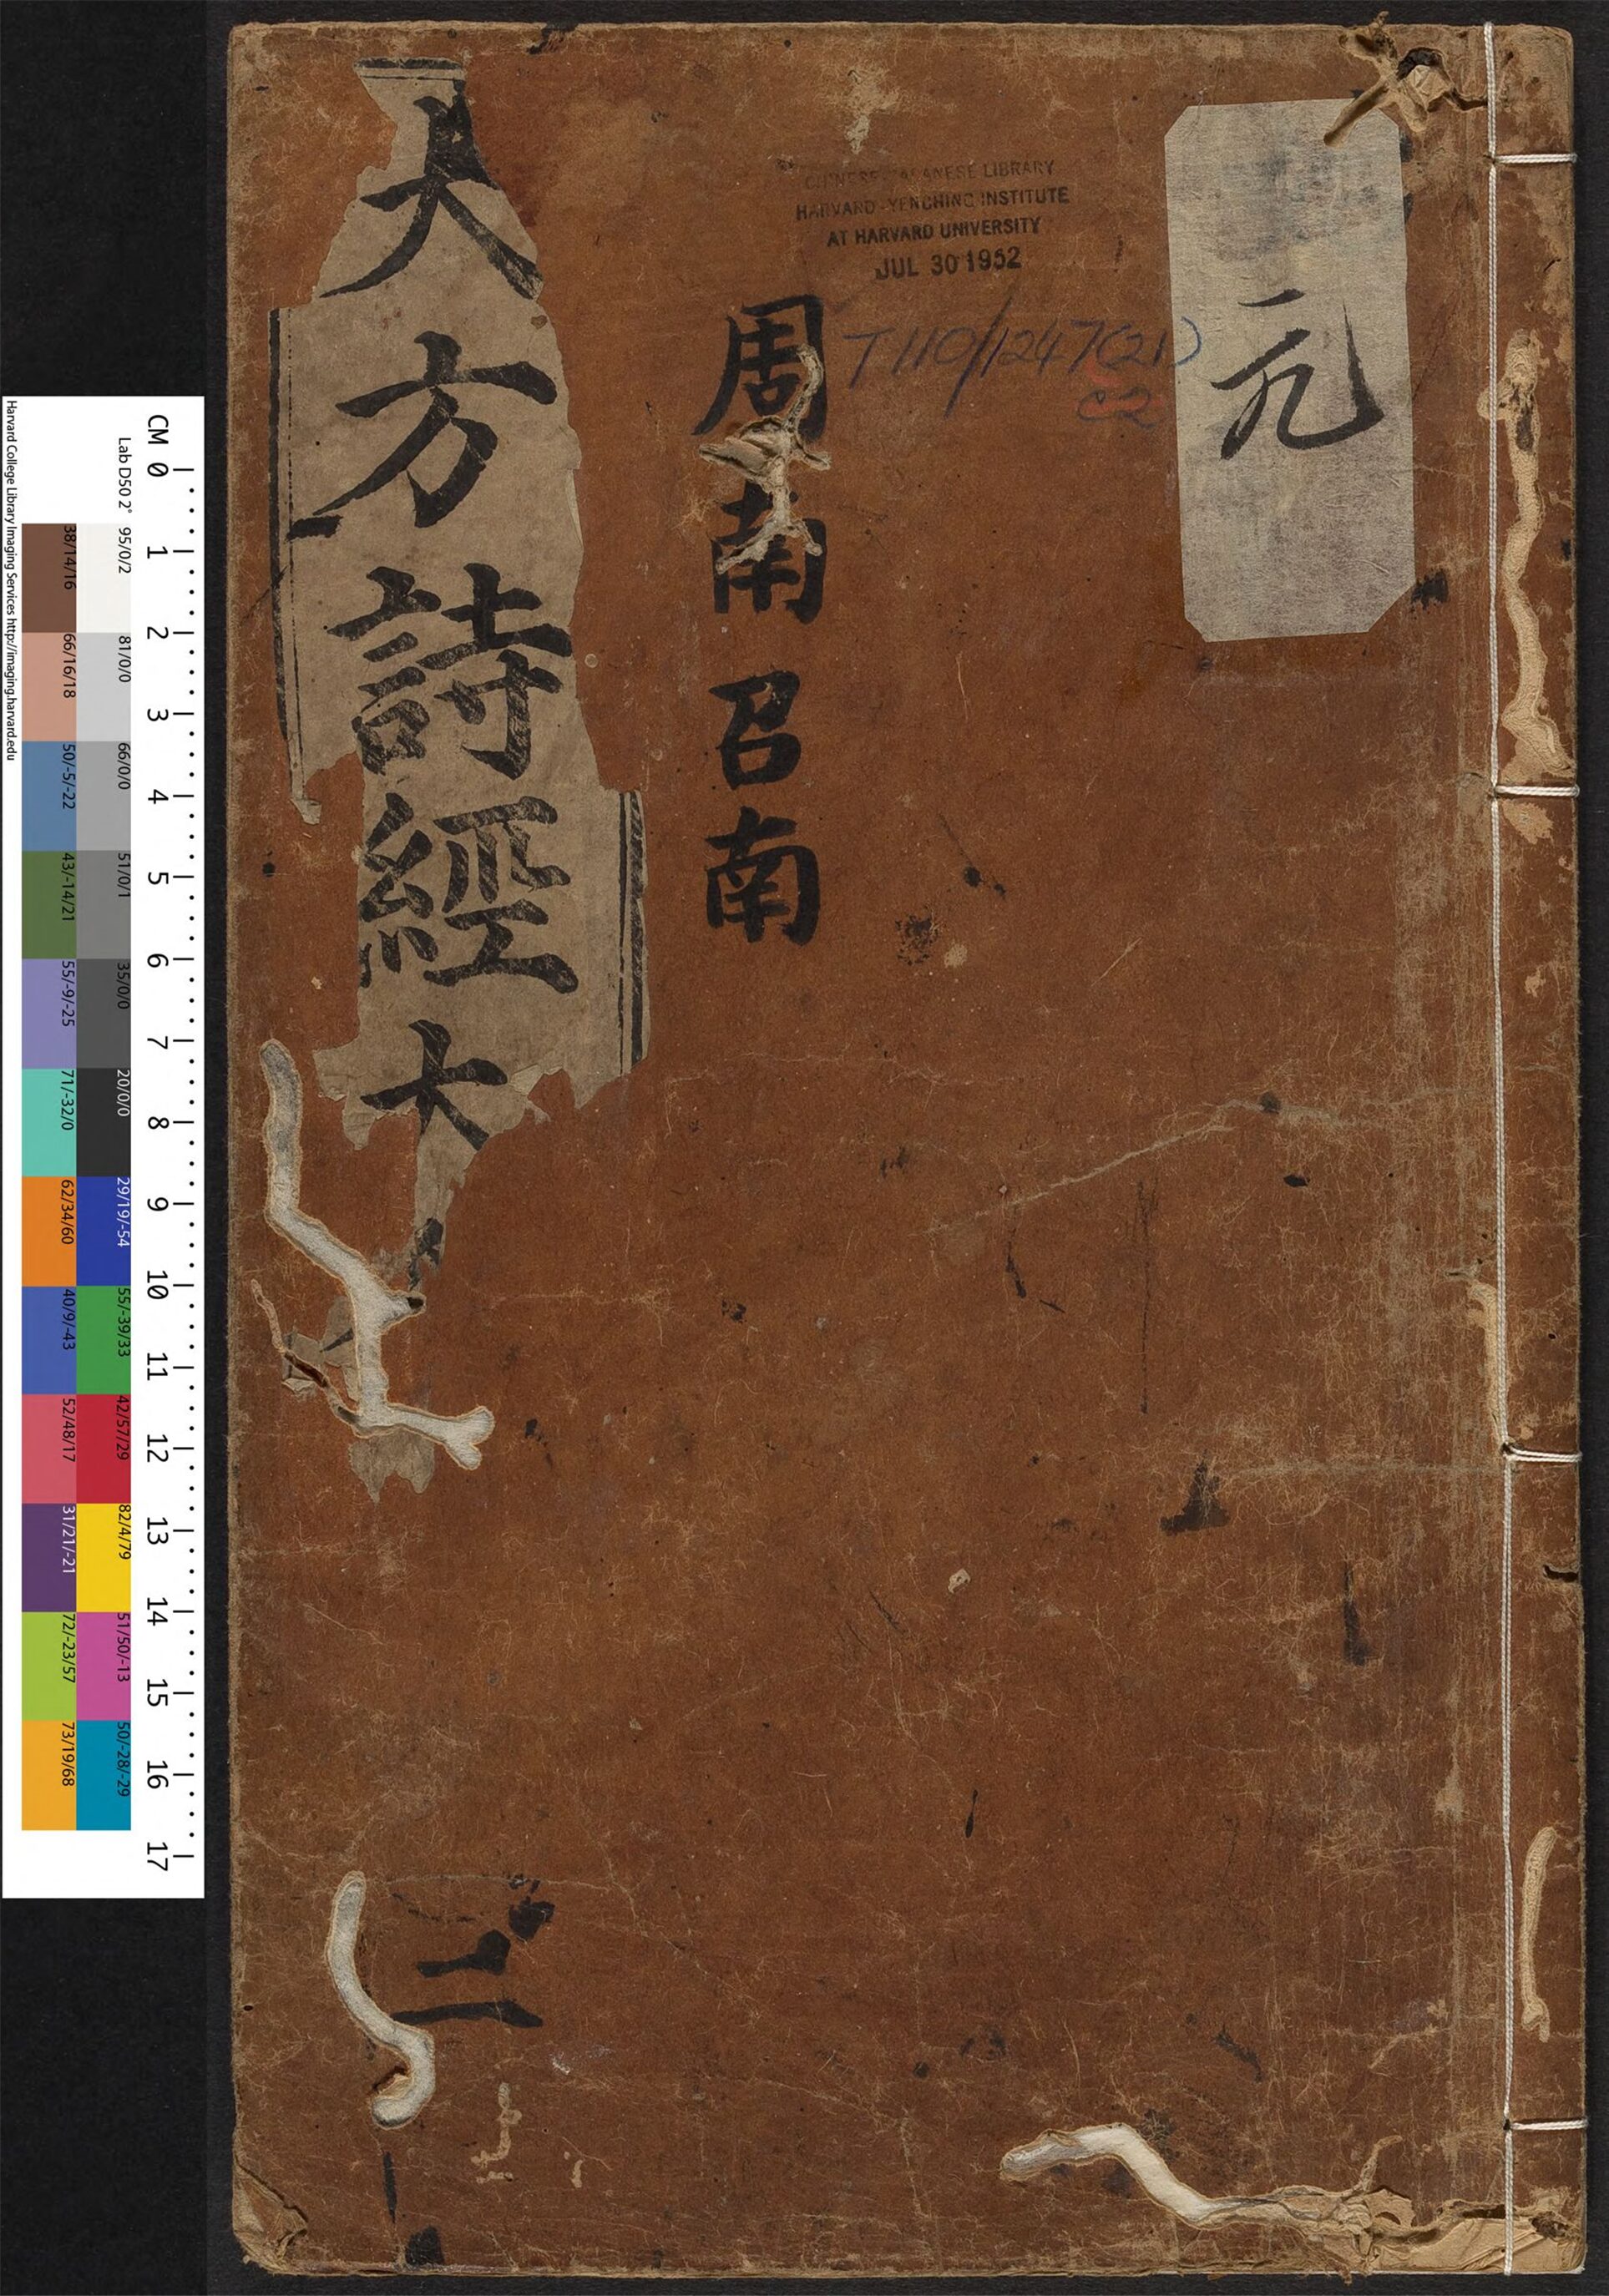 元
CHINESE-JAPANESE LIBRARY
HARVARD-YENCHING INSTITUTE
AT HARVARD UNIVERSITY
JUL 30 1952
T110/1247(21)
C2
周南 召南
大方詩經大
CM 0 1 2 3 4 5 6 7 8 9 10 11 12 13 14 15 16 17
Lab D50 2° 95/0/2 81/0/0 66/0/0 51/0/1 35/0/0 20/0/0 29/19/-54 55/-39/33 42/57/29 82/4/79 51/50/-13 50/-28/-29
38/14/16 66/16/18 50/-5/-22 43/-14/21 55/-9/-25 71/-32/0 62/34/60 40/9/-43 52/48/17 31/21/-21 72/-23/57 73/19/68
Harvard College Library Imaging Services http://imaging.harvard.edu